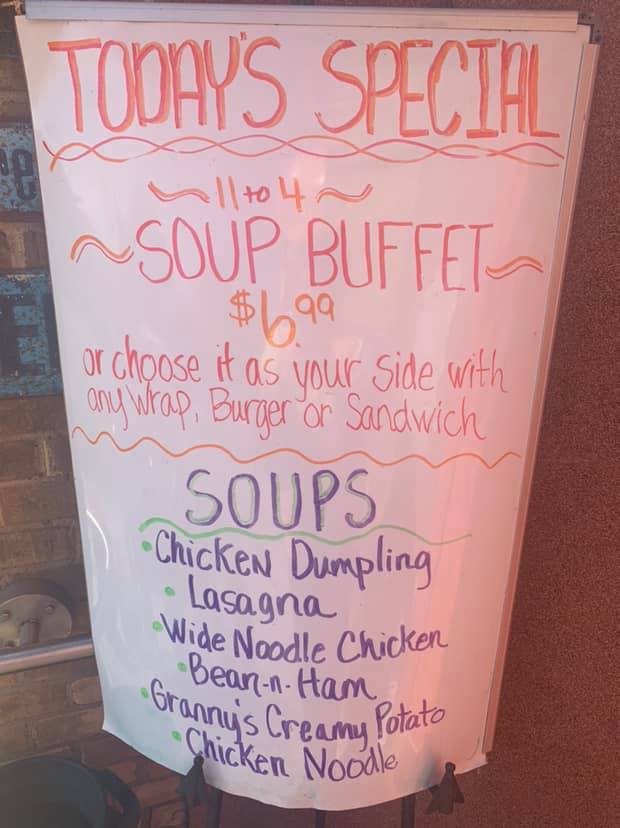 TODAY'S SPECIAL
~ 11 to 4 ~
~SOUP BUFFET~
$6.99
or choose it as your side with
any Wrap, Burger or Sandwich
SOUPS
• Chicken Dumpling
• Lasagna
• Wide Noodle Chicken
• Bean-n-Ham
• Granny's Creamy Potato
• Chicken Noodle